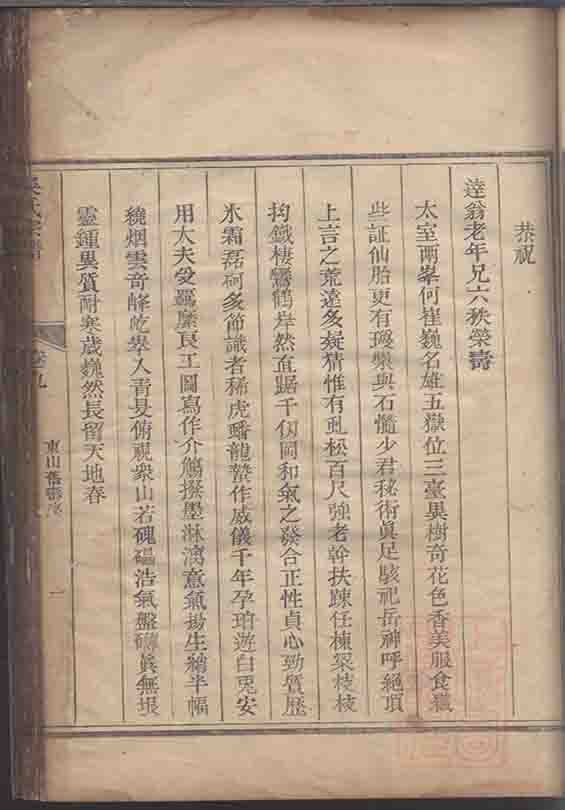 恭祝
逵翁老年兄六秩榮壽
太室兩峯何崔巍名雄五嶽位三臺異樹奇花色香美服食職
些証仙胎更有瓊漿與石髓少君秘術眞足駭祀岳神呼絕頂
上言之荒遠多疑猜惟有虬松百尺強老幹扶踈任棟梁枝枝
拘鐵棲鸞鶴岸然直踞千仭岡和氣之發合正性貞心勁質歷
氷霜磊砢多節識者稀虎蟠龍蟄作威儀千年孕珀遊白兎安
用大夫受羈縻良工圖寫作介觴撰墨淋漓意氣揚生綃半幅
繞烟雲奇峰屹舉入青旻俯視衆山若磈礧浩氣盤礴眞無垠
靈鍾異質耐寒歲巍然長留天地春
吳氏宗譜
卷九
東山舊
一